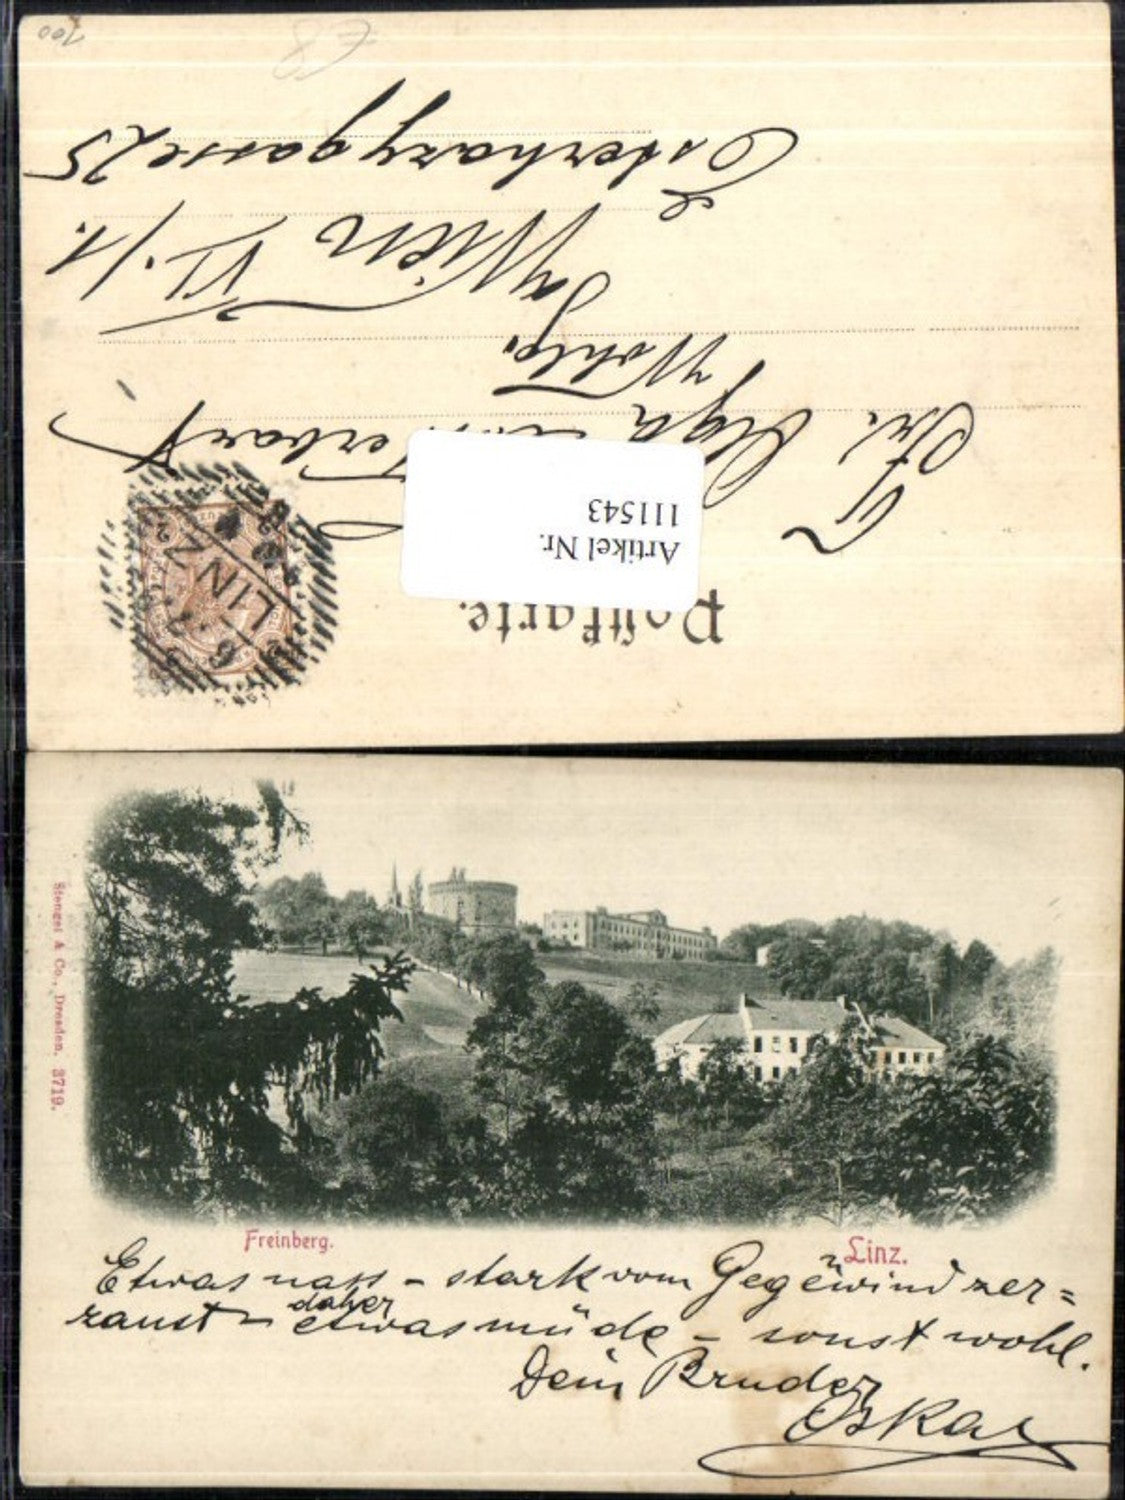 Postkarte.
Artikel Nr.
111543
Frl. Olga
Wohlg.
Wien VI./1.
Esterhazygasse 25
LINZ
6. 7.
100
Stengel & Co., Dresden. 3719.
Freinberg.
Linz.
Etwas nass – stark vom Gegenwind zer=
zaust – daher etwas müde – sonst wohl.
Dein Bruder
Oskar